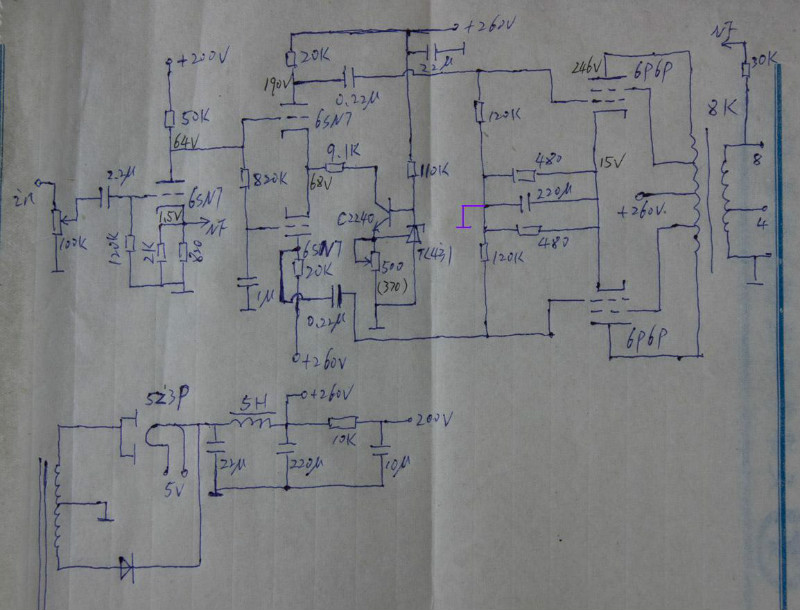 +260V
NF
+200V
20K
22μ
246V
6P6P
30K
190V
0.22μ
8K
50K
6SN7
120K
64V
9.1K
480
15V
8
2.2μ
820K
68V
110K
220μ
in
6SN7
C2240
+260V.
4
1.5V
NF
100K
6SN7
TL431
480
120K
2K
820
20K
500
120K
(370)
1μ
0.22μ
6P6P
+260V
5Z3P
5H
+260V
200V
10K
5V
22μ
220μ
10μ